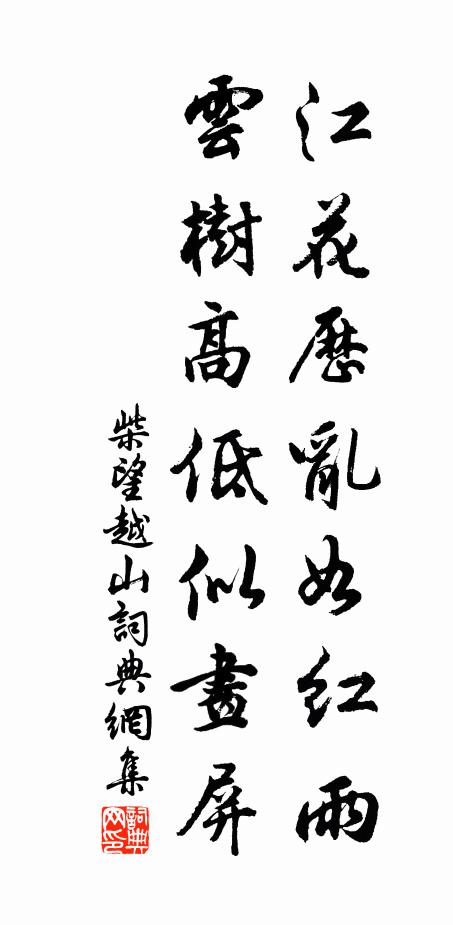 江花歷亂如紅雨
雲樹高低似畫屏
柴望越山詞典網集
詞典網印